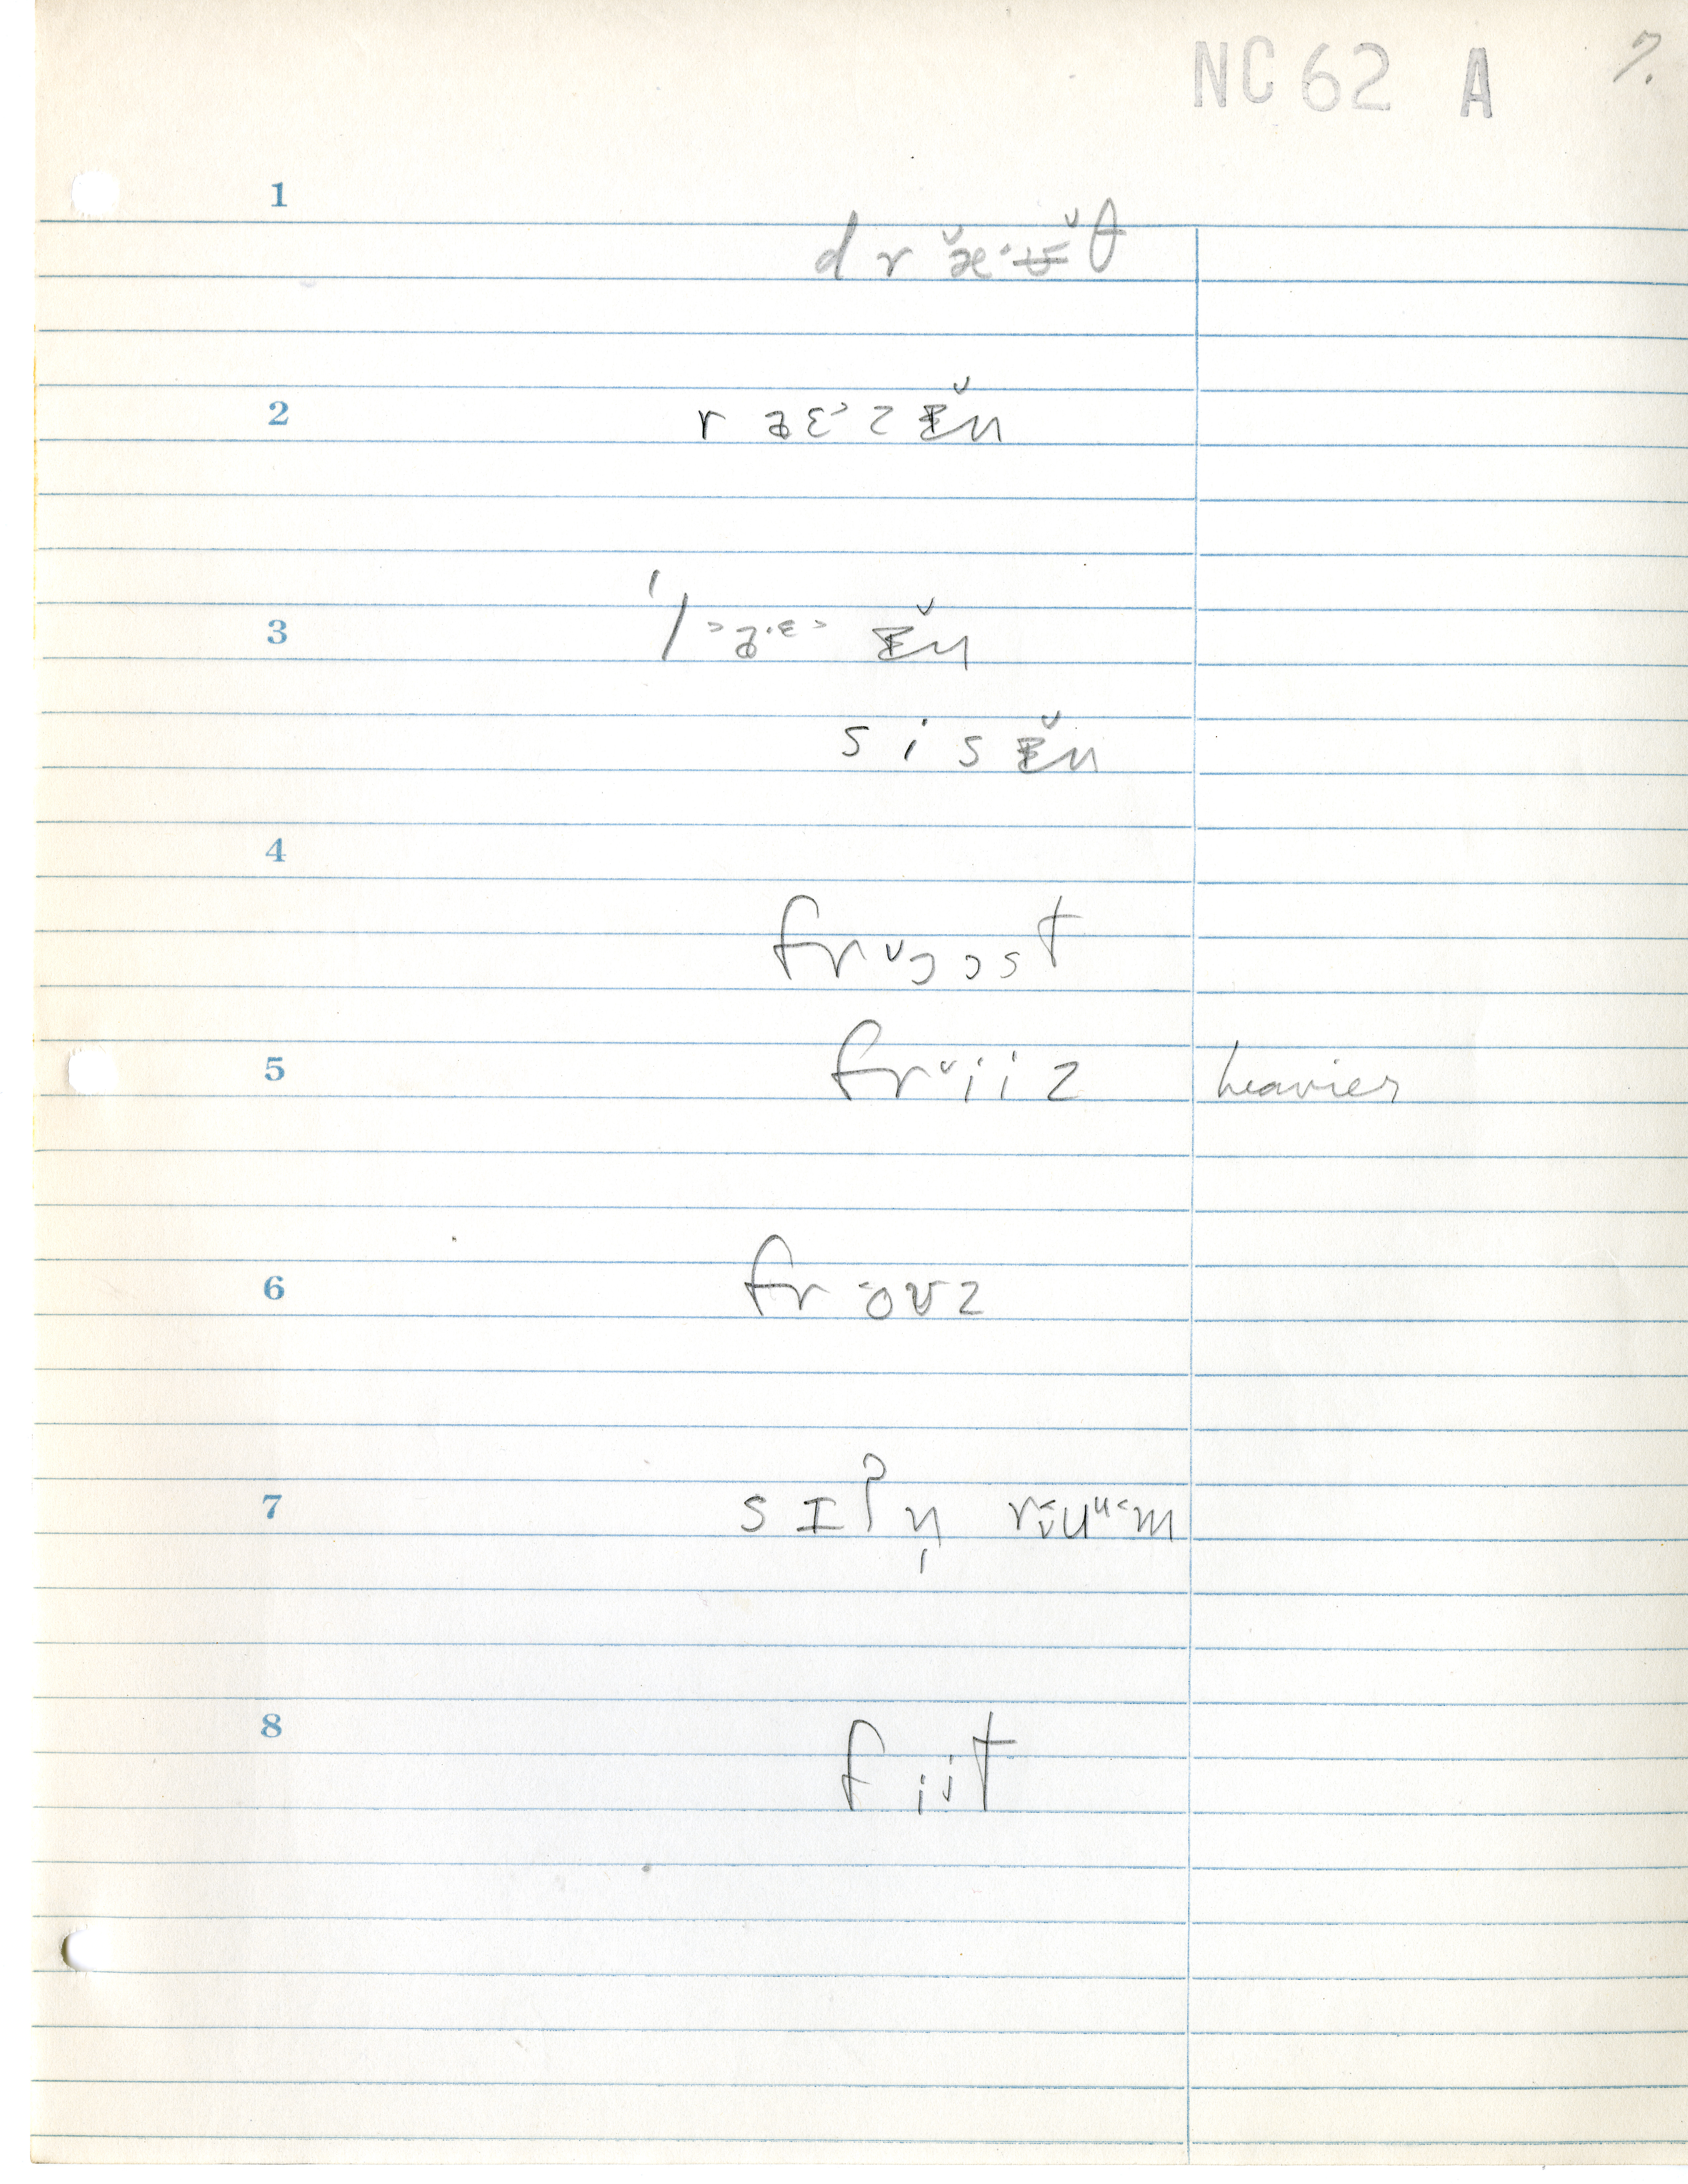 NC 62 A 7.
1
d r æ̆·ʉ̆ θ
2
r æɛ˃ z ɪ̆n
3
ˈl ˃æ·ɛ˃ ɪ̆n
s i s ɪ̆n
4
frᵛɔɔst
5 frᵛiiz heavier
6 fr oʊz
7 sɪʔn̩ r˂ᵥuᵘ˂m
8
fiit